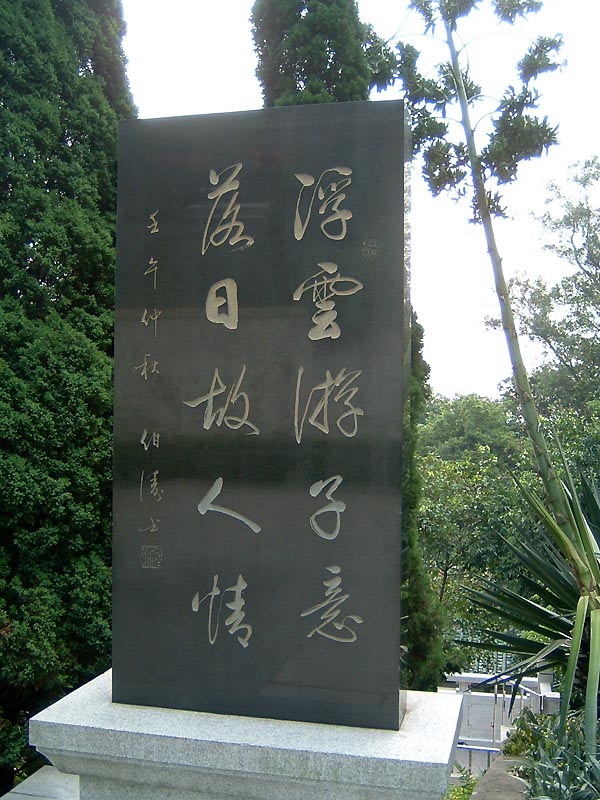 浮雲游子意
落日故人情
壬午仲秋 伯濤书